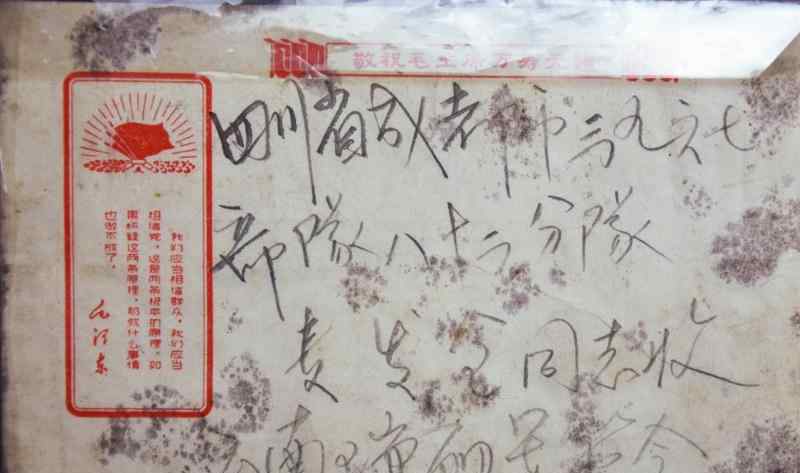 敬祝毛主席万寿无疆
四川省成都市三九六七
部隊八十二分隊
同志收
南瑞丽
我们应当相信群众，我们应当
相信党，这是两条根本的原理，如
果怀疑这两条原理，那就什么事情
也做不成了。
毛泽东